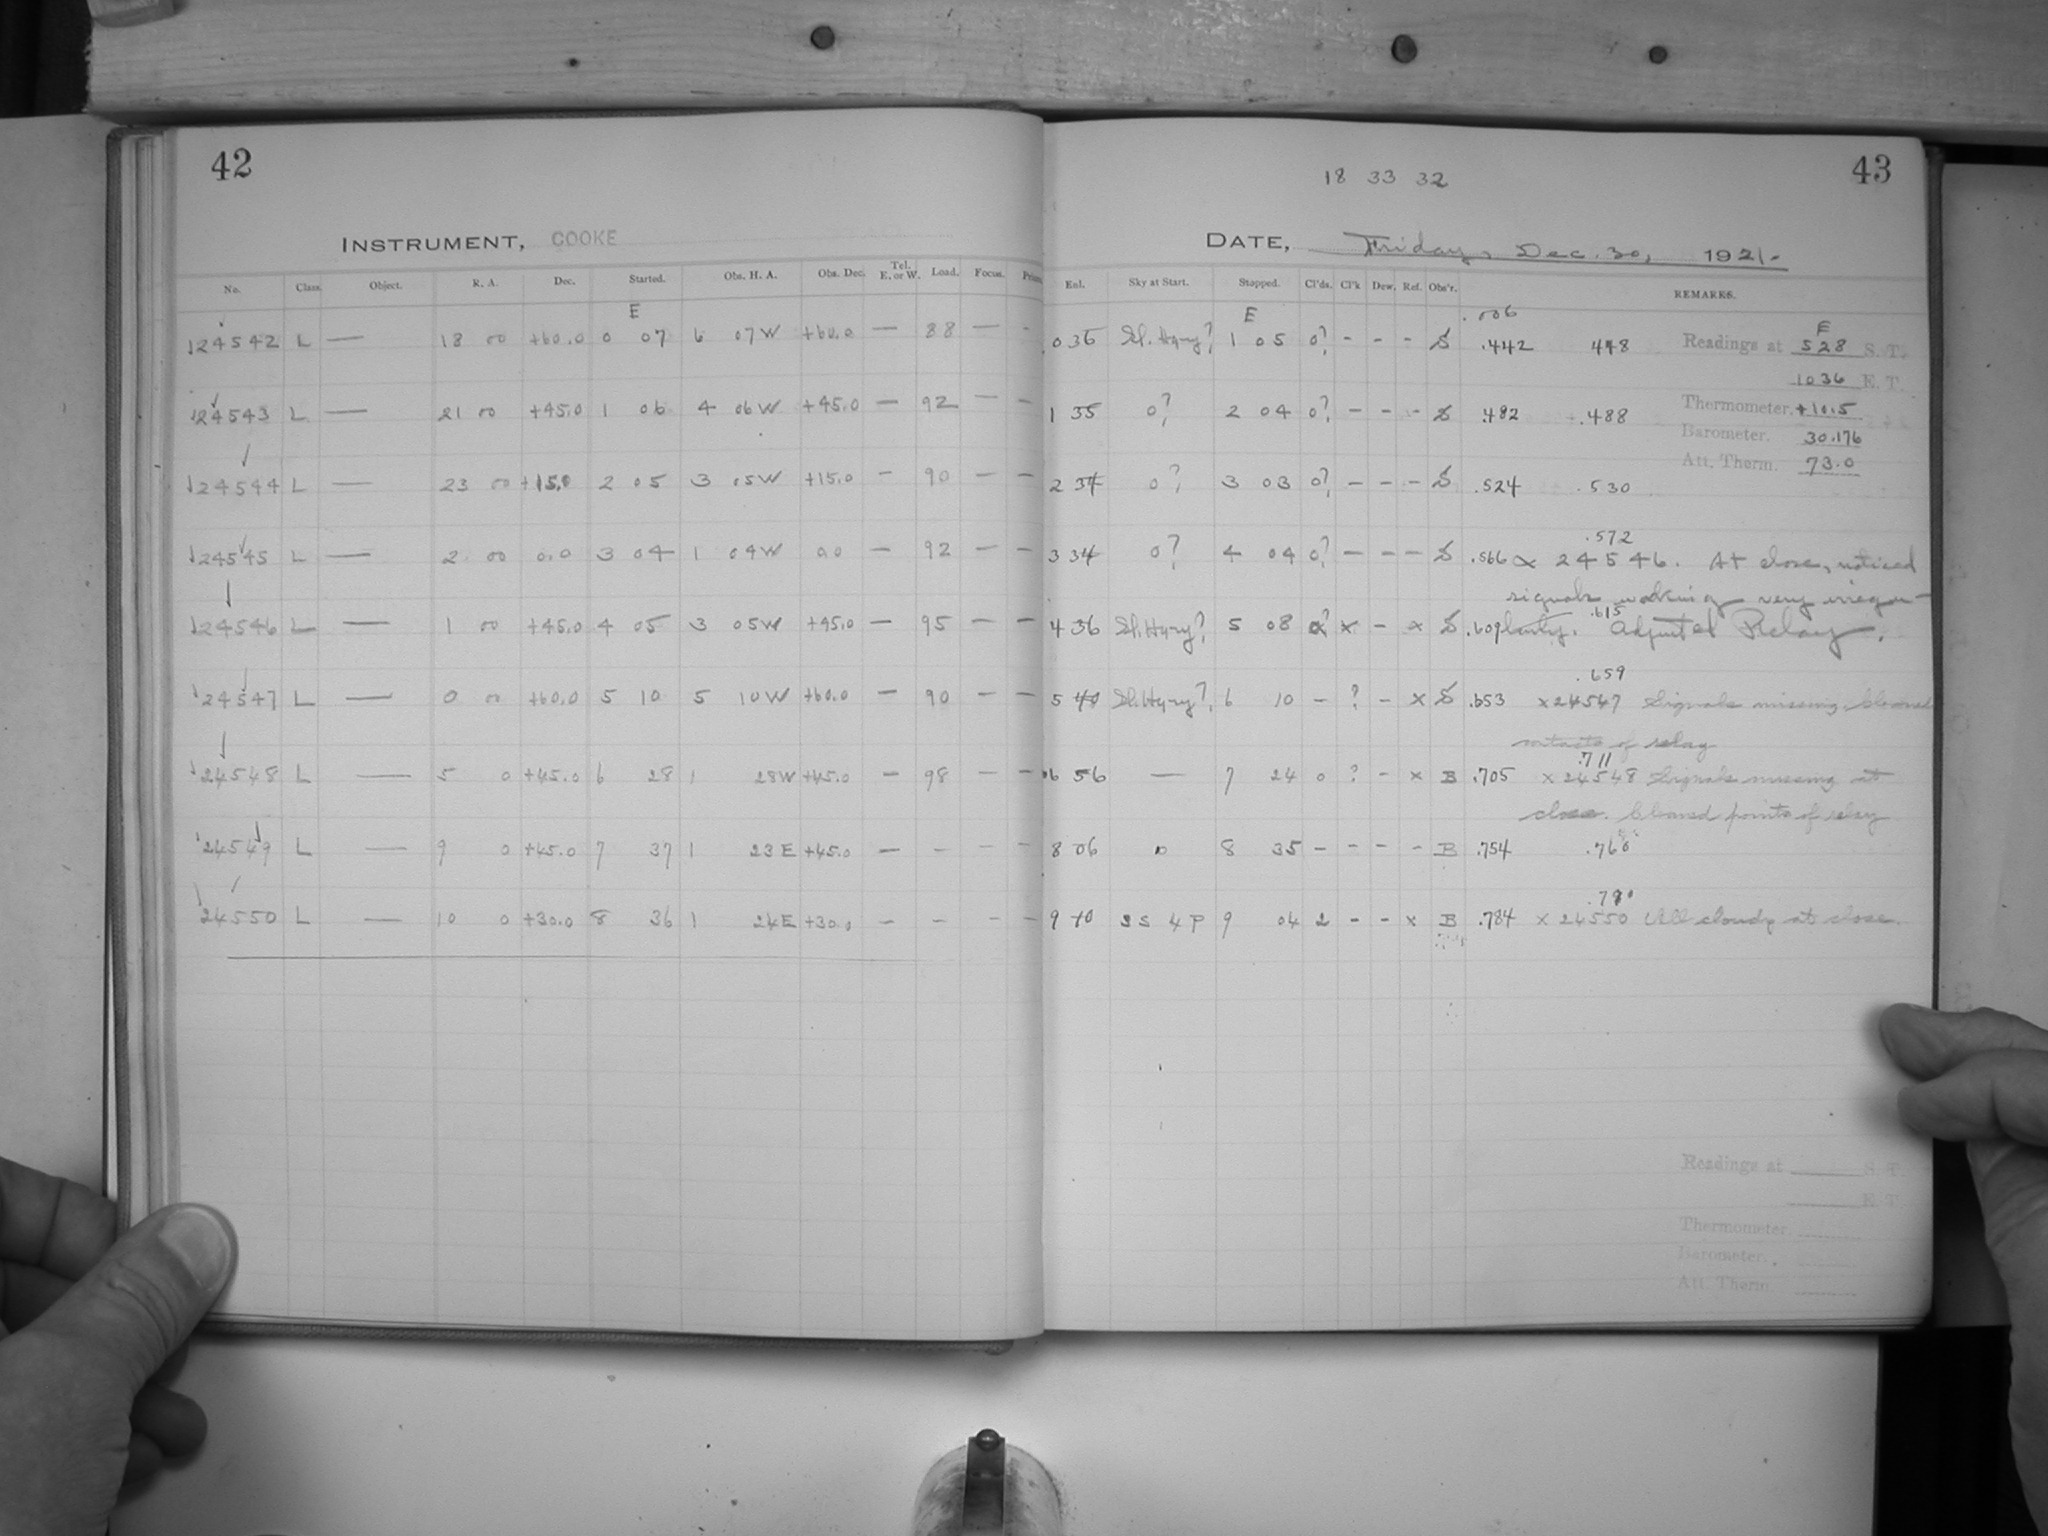 42
INSTRUMENT, COOKE
No. Class. Object. R. A. Dec. Started. Obs. H. A. Obs. Dec. Tel. E. or W. Load. Focus.
E
24542 L — 18 00 +60.0 0 07 6 07W +60.0 — 88 — -
24543 L — 21 00 +45.0 1 06 4 06W +45.0 — 92 — —
24544 L — 23 00 +15.0 2 05 3 05W +15.0 — 90 — —
24545 L — 2 00 0.0 3 04 1 04W 0.0 — 92 — —
24546 L — 1 00 +45.0 4 05 3 05W +45.0 — 95 — —
24547 L — 0 00 +60.0 5 10 5 10W +60.0 — 90 — —
24548 L — 5 0 +45.0 6 28 1 28W +45.0 — 98 — —
24549 L — 9 0 +45.0 7 37 1 23E +45.0 — — - -
24550 L — 10 0 +30.0 8 36 1 24E +30.0 — — - —
43
18 33 32
DATE, Friday, Dec. 30, 1921.
Enl. Sky at Start. Stopped. Cl'ds. Cl'k Dew. Ref. Obs'r. REMARKS.
E .006
0 36 Sl. Hazy? 1 05 0? - - - S .442 448
1 35 0? 2 04 0? - - - S .482 .488
2 34 0? 3 03 0? - - - S .524 .530
.572
3 34 0? 4 04 0? - - - S .566 x 24546. At close, noticed
signals working very irregu-
.615
4 36 Sl. Hazy? 5 08 x - x S .609 larly. Adjusted Relay.
.659
5 40 Sl. Hazy? 6 10 - ? - x S .653 x24547 Signals missing. Cleaned
contacts of relay
.711
6 56 — 7 24 0 ? - x B .705 x 24548 Signals missing at
close. Cleaned points of relay
8 06 0 8 35 - - - - B .754 .760
.790
9 10 2S 4P 9 04 2 - - x B .784 x 24550 All cloudy at close.
E
Readings at 528 S. T.
1036 E. T.
Thermometer. +10.5
Barometer. 30.176
Att. Therm. 73.0
Readings at S. T.
E. T.
Thermometer
Barometer.
Att. Therm